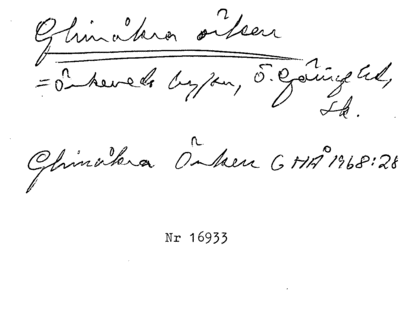 Glimåkra öken
= Örkeneds bygden, Ö. Göinge hd,
Sk.
Glimåkra Örken GHÅ 1968:28
Nr 16933